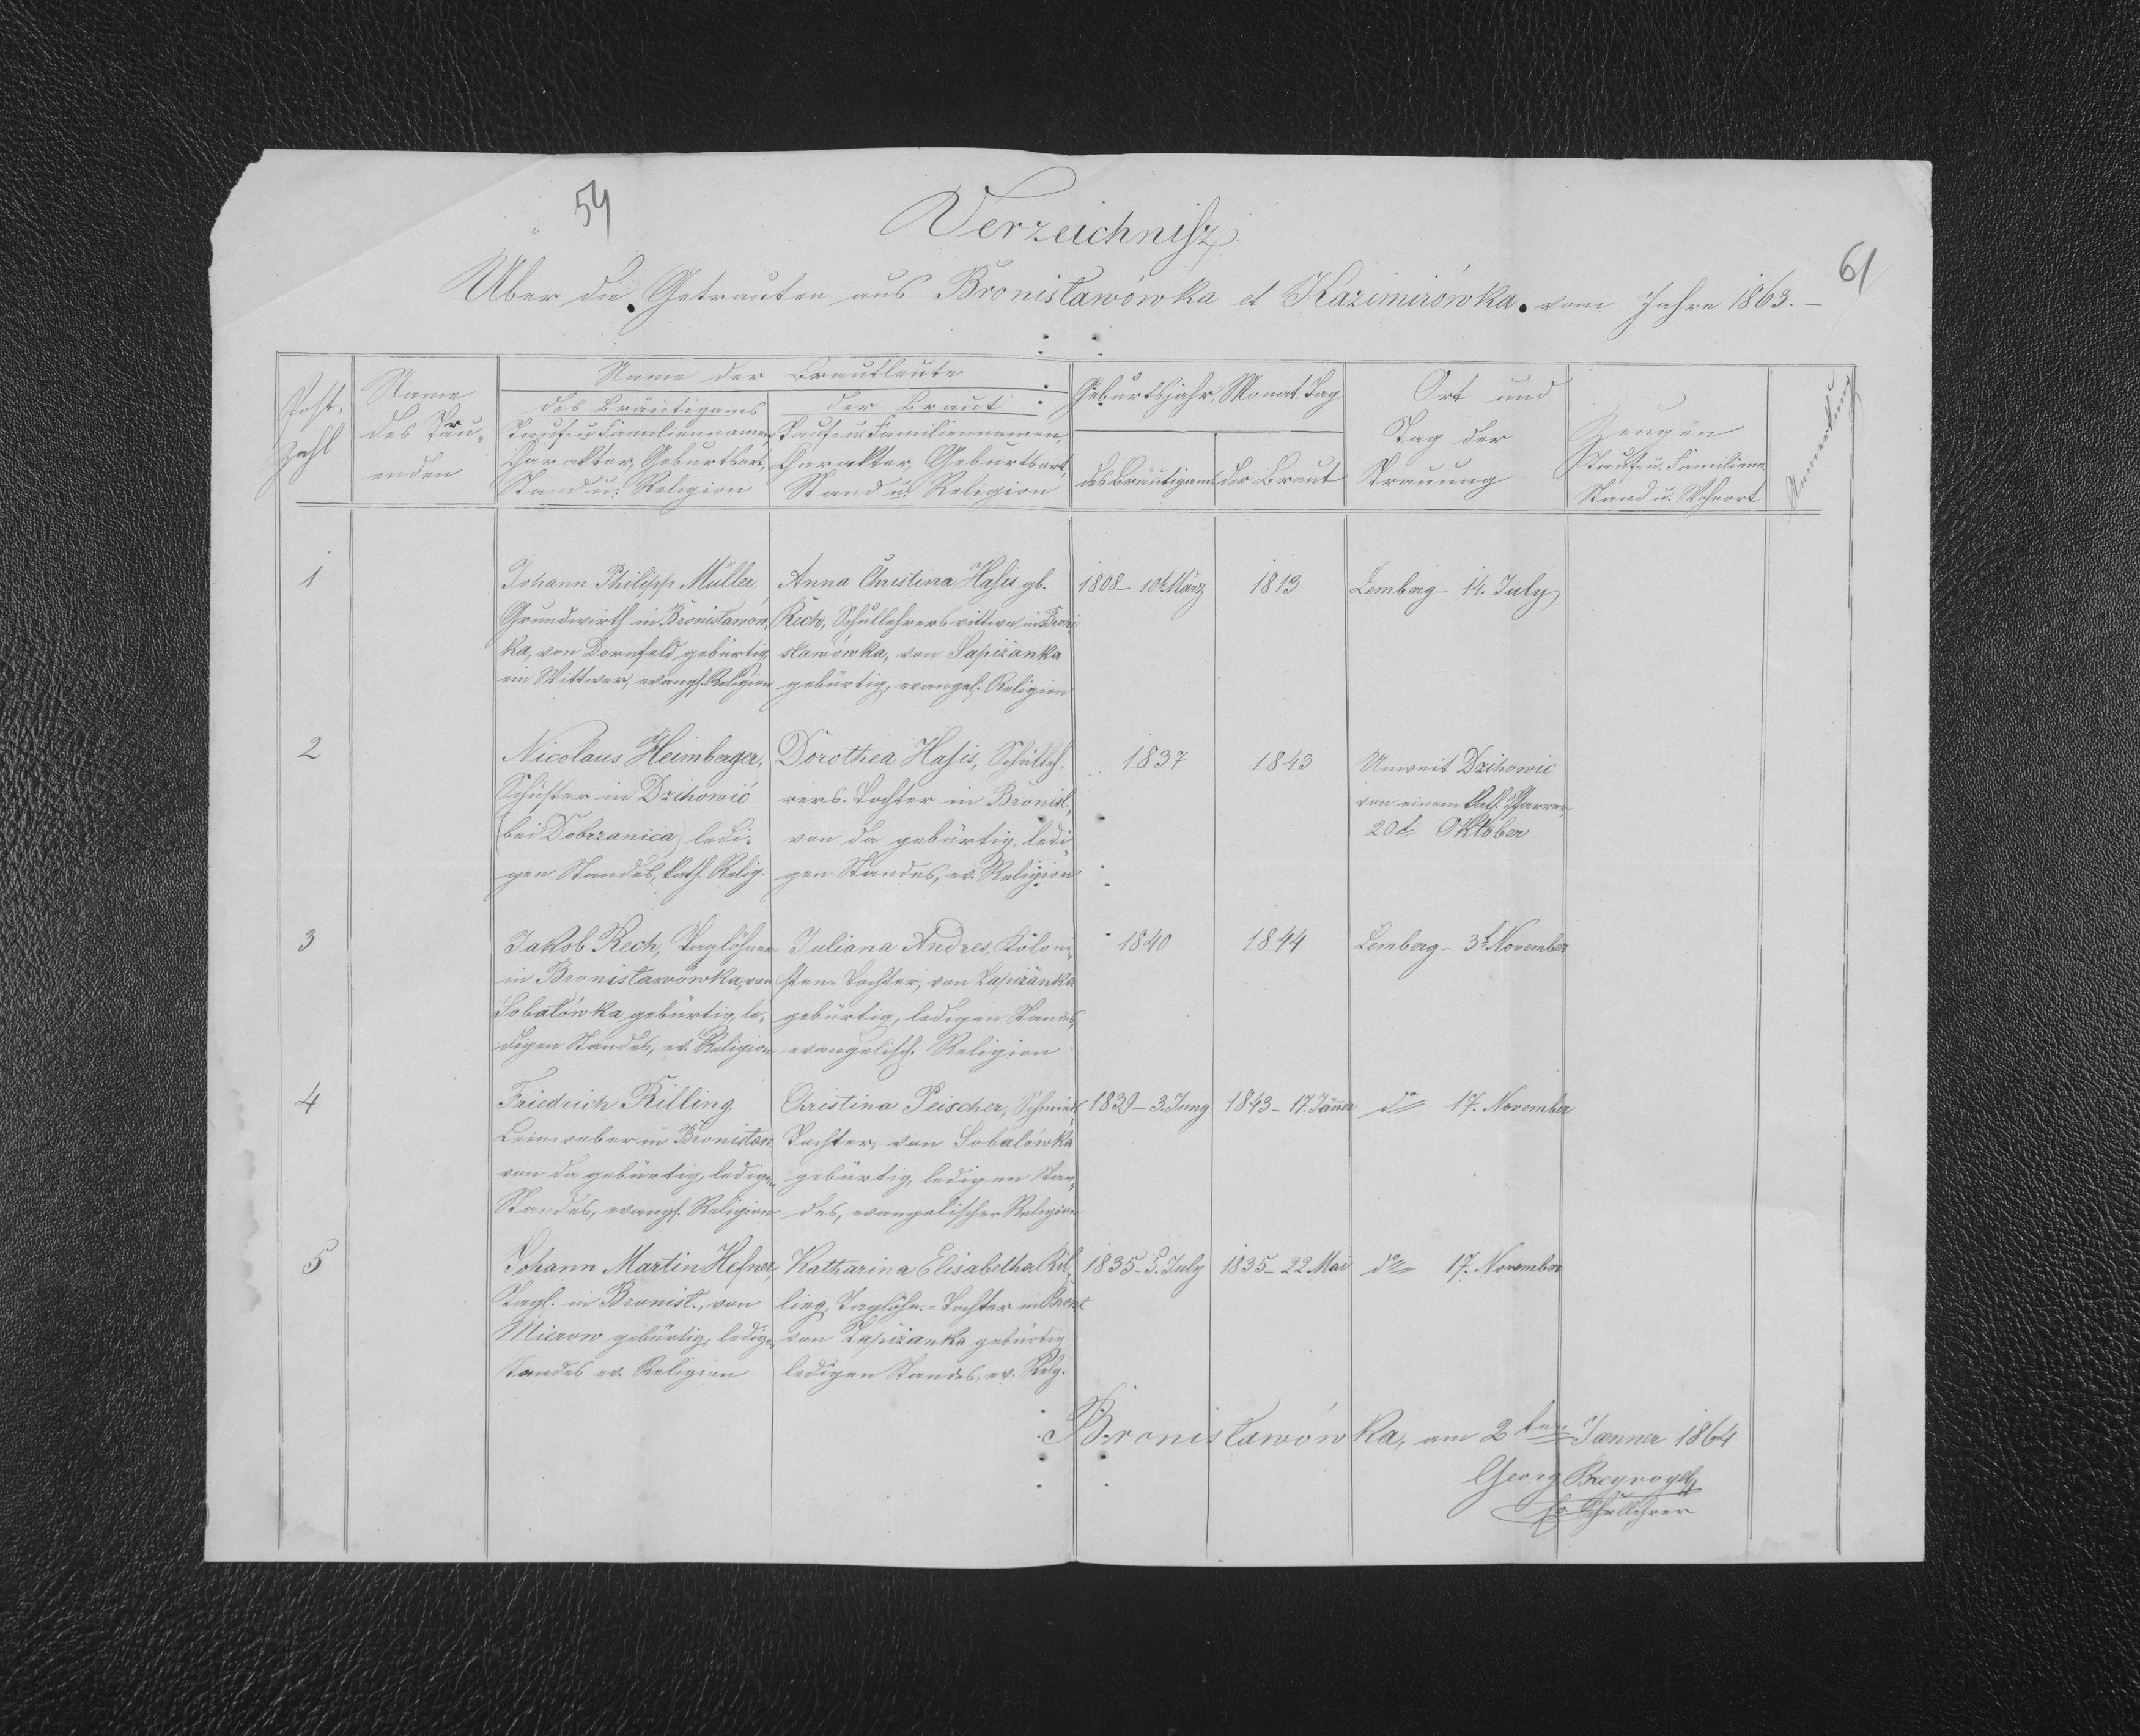 54
Verzeichnisz
61
Über die Getrauten aus Bronisławówka et Kazimirówka vom Jahre 1863.
Post-
Zahl
Name
des Trau-
enden
Name der Brautleute
des Bräutigams
Tauf- u Familiennamen,
Charakter, Geburtsort,
Stand u. Religion
der Braut
Tauf- u. Familiennamen,
Charakter, Geburtsort,
Stand u. Religion
Geburtsjahr, Monat Tag
des Bräutigams
der Braut
Ort und
Tag der
Trauung
Zeugen
Tauf- u. Familienn.
Stand u. Wohnort
Anmerkung
1
Johann Philipp Müller,
Grundwirth in Bronisławów-
ka, von Dornfeld gebürtig,
ein Wittwer, evangl. Religion
Anna Christina Hasis gb.
Rech, Schullehrerswittwe in Broni-
sławówka, von Sapiżanka
gebürtig, evangel. Religion
1808 – 10t März
1813
Lemberg – 14. July
2
Nicolaus Heimberger,
Schuster in Dzihowić
(bei Dobrzanica) ledi-
gen Standes, kath. Relig.
Dorothea Hasis, Schulleh-
rers-Tochter in Bronisł.,
von da gebürtig, ledi-
gen Standes, ev. Religion
1837
1843
Unweit Dzihowic
von einem kath. Pfarrer,
20t Oktober
3
Jakob Rech, Taglöhner
in Bronisławówka, von
Sobałówka gebürtig, le-
digen Standes, ev. Religion
Juliana Andres, Koloni-
sten-Tochter, von Łapiżanka
gebürtig, ledigen Standes,
evangelisch. Religion
1840
1844
Lemberg – 3t November
4
Friedrich Rilling
Leinweber in Bronisław.
von da gebürtig, ledigen
Standes, evangl. Religion
Christina Peischer, Schmied-
Tochter, von Sobalówka
gebürtig, ledigen Stan-
des, evangelischer Religion
1839 – 3. Juny
1843 – 17. Jänner
dto 17. November
5
Johann Martin Hefner,
Tagl. in Bronisł., von
Mierow gebürtig, ledigen
Standes ev. Religion
Katharina Elisabetha Ril-
ling, Taglöhn.-Tochter in Bronisł.
von Łapiżanka gebürtig
ledigen Standes, ev. Relg.
1835 – 5. July
1835 – 22 Mai
dto 17. November
Bronisławówka, am 2ten Jænner 1864
Georg Breyvogel
Schullehrer